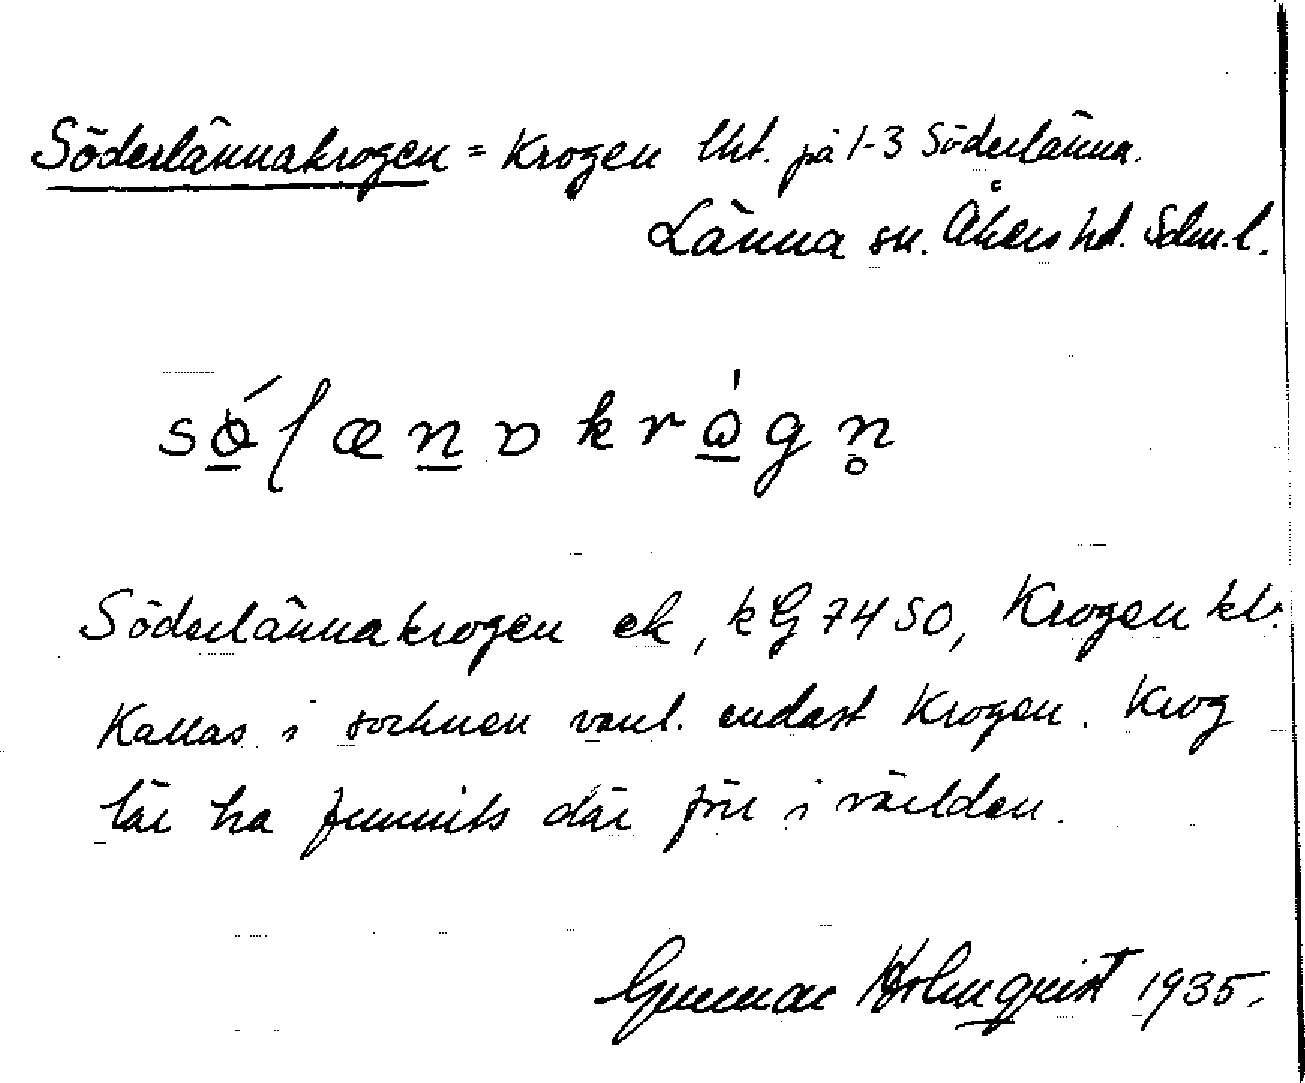 Söderlännakrogen = Krogen lht. på 1-3 Söderlänna.
Länna sn. Åkers hd. Sdm. l.
Söderlännakrogen ek, kG 7450, Krogen kl.
Kallas i socknen vanl. endast Krogen. Krog
lär ha funnits där förr i världen.
Gunnar Holmquist 1935.